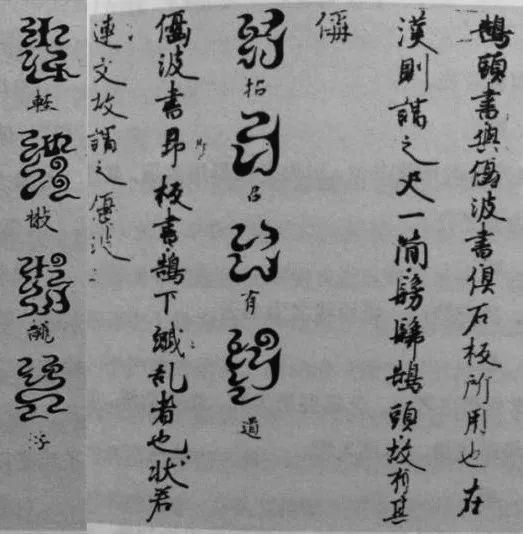 鵠頭書與偃波書俱石板所用也在
漢則謂之尺一簡髣髴鵠頭故有其
稱
招
吕
有
道
偃波書昂板書鵠下纖乱者也状若
連文故謂之偃波
軽
浮